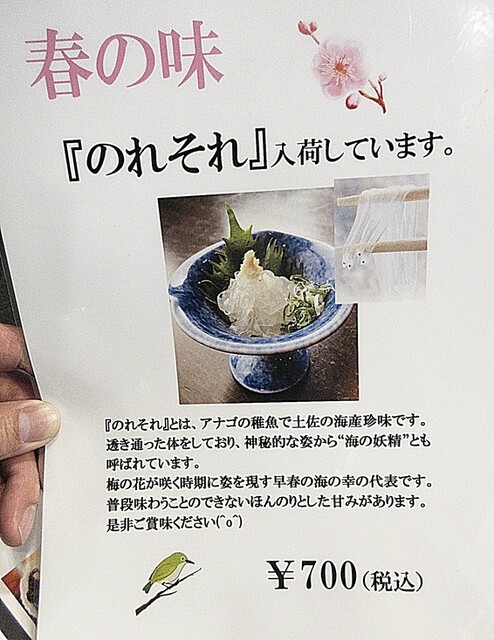 春の味
『のれそれ』入荷しています。
『のれそれ』とは、アナゴの稚魚で土佐の海産珍味です。
透き通った体をしており、神秘的な姿から“海の妖精”とも
呼ばれています。
梅の花が咲く時期に姿を現す早春の海の幸の代表です。
普段味わうことのできないほんのりとした甘みがあります。
是非ご賞味ください(^o^)
￥700(税込)